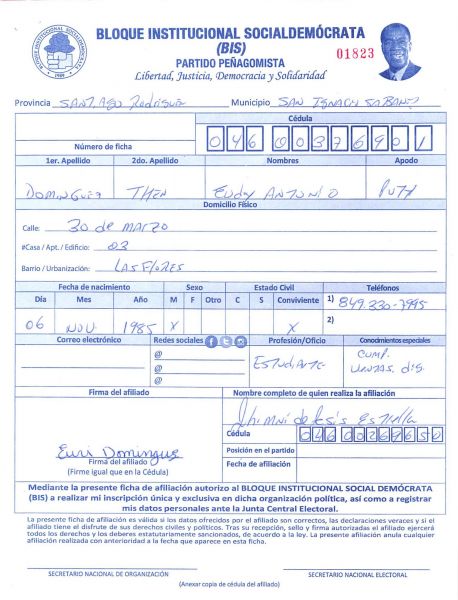 BLOQUE INSTITUCIONAL SOCIALDEMÓCRATA
(BIS)
PARTIDO PEÑAGOMISTA
Libertad, Justicia, Democracia y Solidaridad
01823
Provincia SANTIAGO Rodríguez Municipio SAN IGNACIO SABANETA
Cédula
Número de ficha 046 0037690 1
1er. Apellido 2do. Apellido Nombres Apodo
DOMINGUEZ THEN EUDY ANTONIO PUTY
Domicilio Físico
Calle: 30 de MARZO
#Casa / Apt. / Edificio: 03
Barrio / Urbanización: LAS FLORES
Fecha de nacimiento Sexo Estado Civil Teléfonos
Día Mes Año M F Otro C S Conviviente 1) 849-330-7995
06 NOV. 1985 X X 2)
Correo electrónico Redes sociales Profesión/Oficio Conocimientos especiales
@ ESTUDIANTE COMP.
@
@
Firma del afiliado Nombre completo de quien realiza la afiliación
Cédula 046 0026765 0
Posición en el partido
Firma del afiliado
(Firme igual que en la Cédula)
Fecha de afiliación
Mediante la presente ficha de afiliación autorizo al BLOQUE INSTITUCIONAL SOCIAL DEMÓCRATA
(BIS) a realizar mi inscripción única y exclusiva en dicha organización política, así como a registrar
mis datos personales ante la Junta Central Electoral.
La presente ficha de afiliación es válida si los datos ofrecidos por el afiliado son correctos, las declaraciones veraces y si el
afiliado tiene el disfrute de sus derechos civiles y políticos. Tras su recepción, sello y firma autorizadas el afiliado ejercerá
todos los derechos y los deberes estatutariamente sancionados, de acuerdo a la ley. La presente afiliación anula cualquier
afiliación realizada con anterioridad a la fecha que aparece en esta ficha.
SECRETARIO NACIONAL DE ORGANIZACIÓN SECRETARIO NACIONAL ELECTORAL
(Anexar copia de cédula del afiliado)